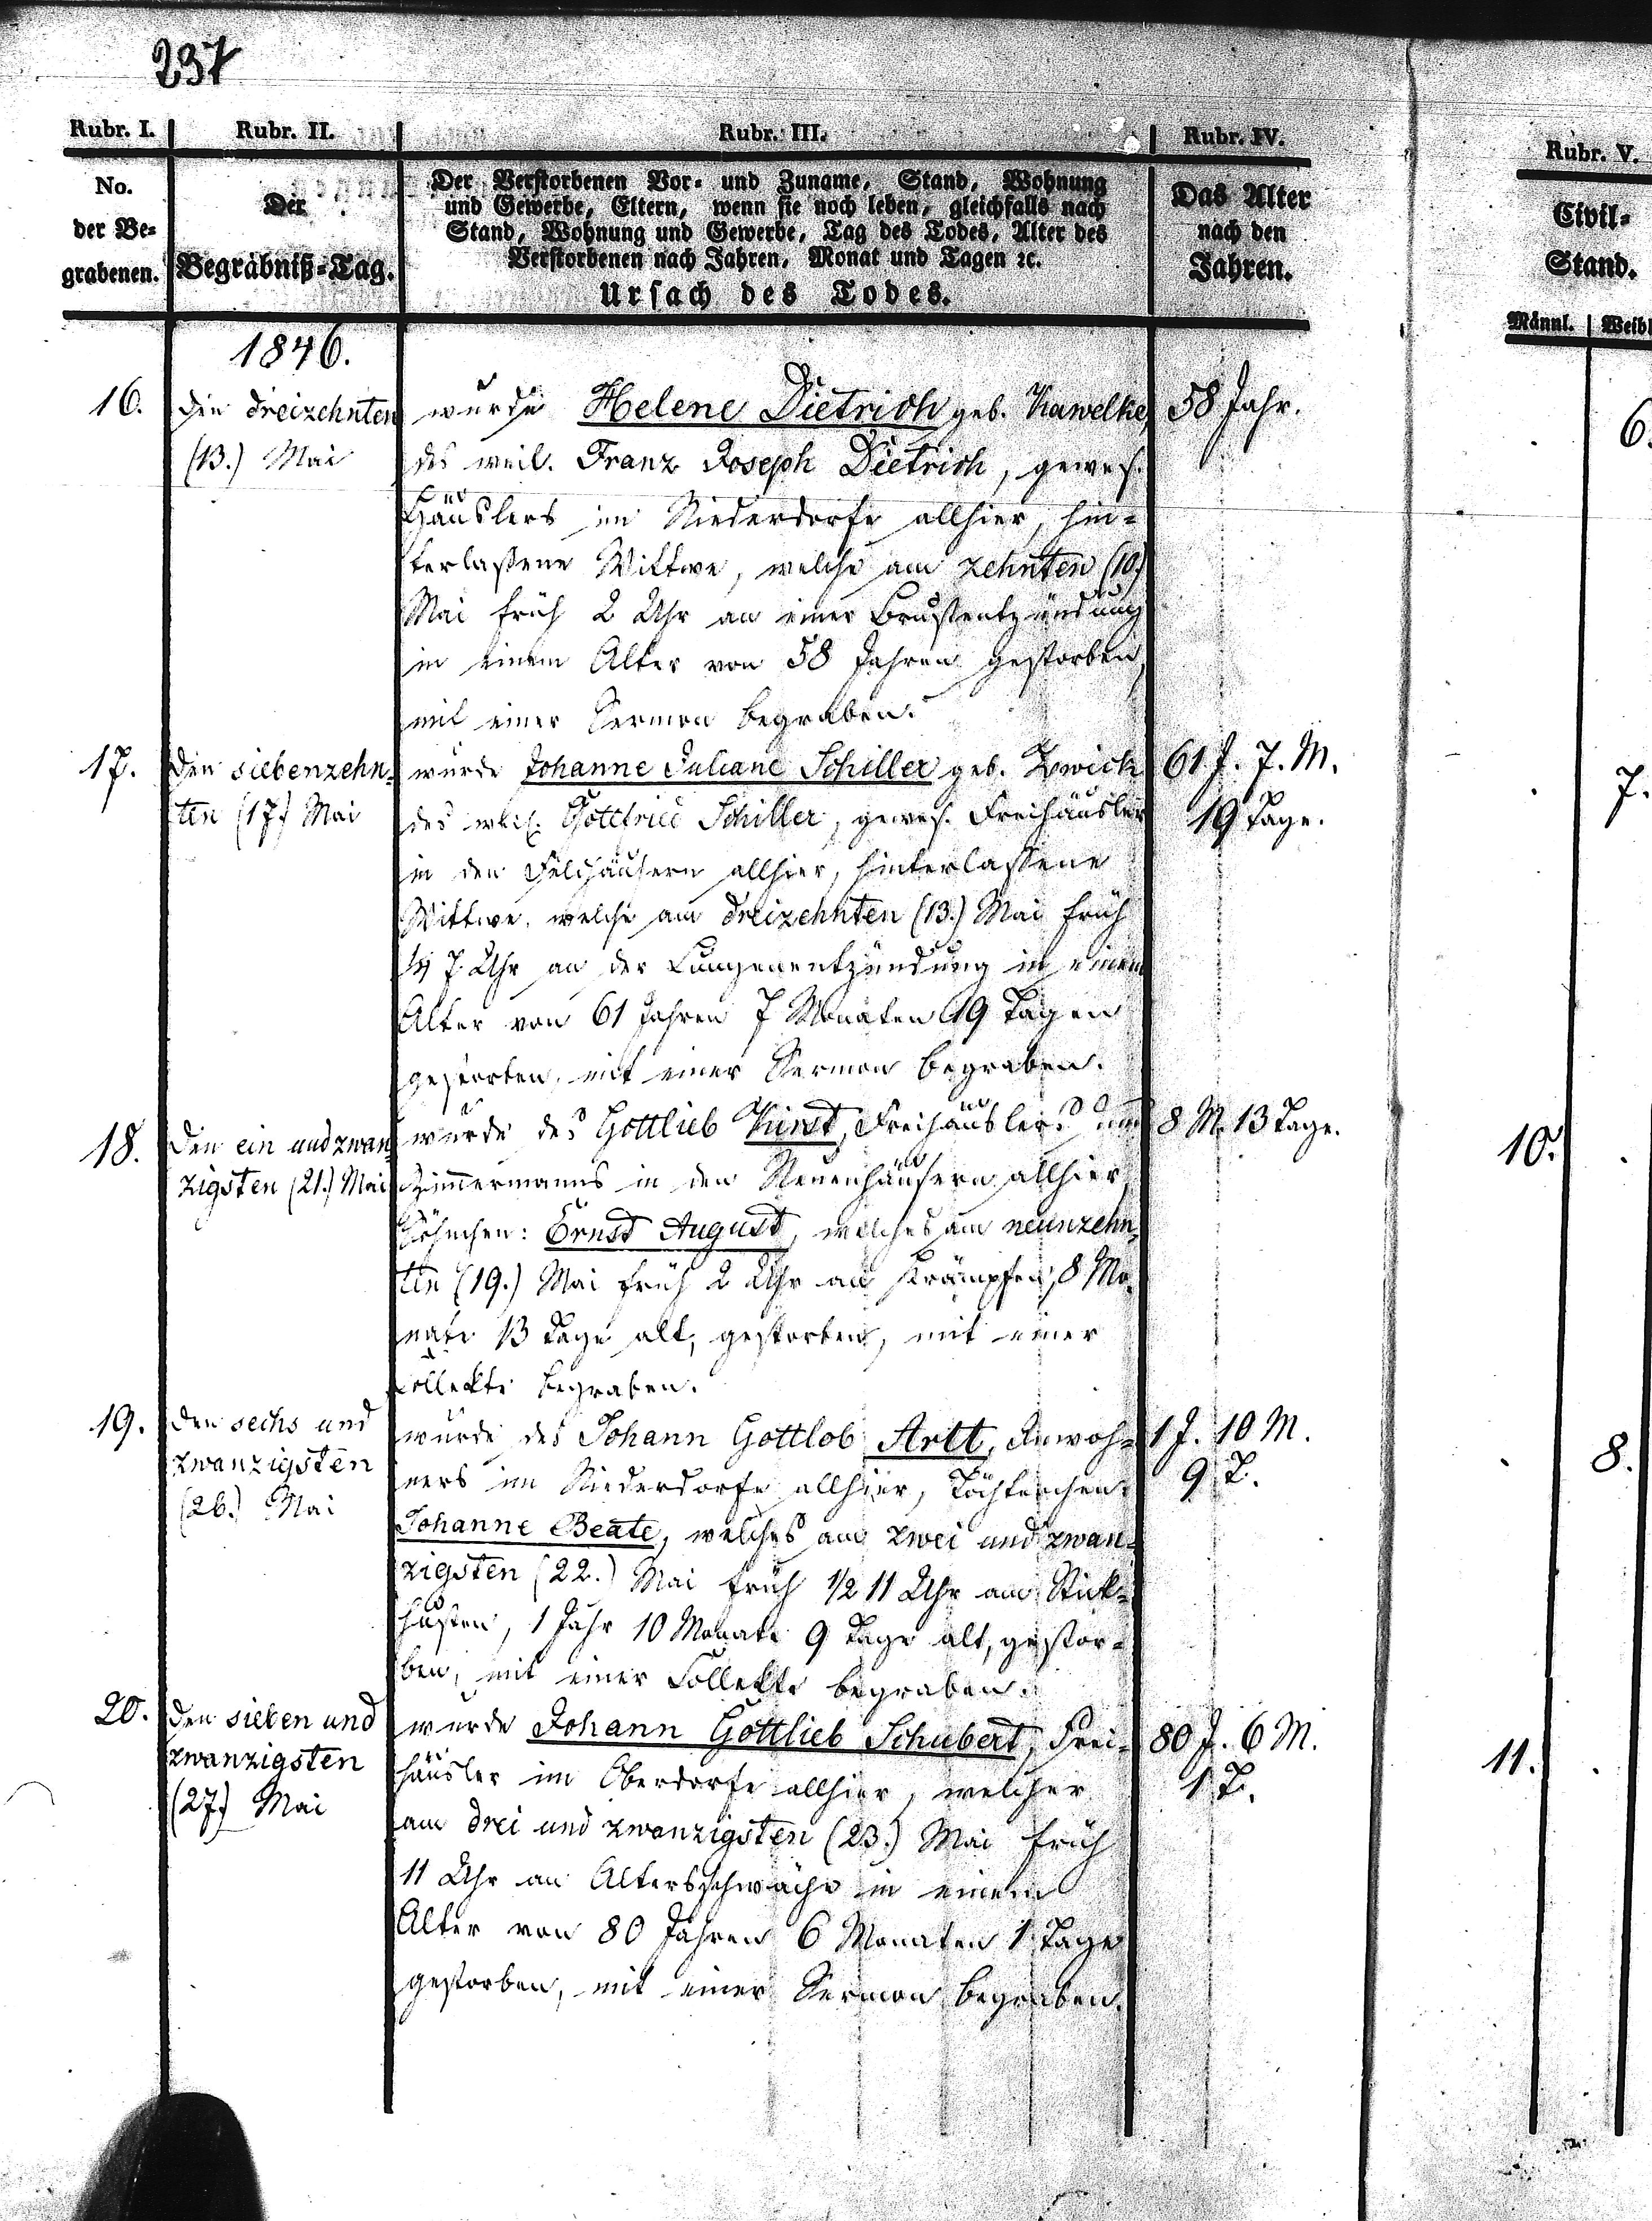 237
Rubr. I. Rubr. II. Rubr. III. Rubr. IV. Rubr. V.
No.
der Be-
grabenen.
Der
Begräbniß-Tag.
Der Verstorbenen Vor- und Zuname, Stand, Wohnung
und Gewerbe, Eltern, wenn sie noch leben, gleichfalls nach
Stand, Wohnung und Gewerbe, Tag des Todes, Alter des
Verstorbenen nach Jahren, Monat und Tagen ꝛc.
Ursach des Todes.
Das Alter
nach den
Jahren.
Civil-
Stand.
Männl. Weibl
1846.
16. den dreizehnten
(13.) Mai
wurde Helene Dietrich geb. Kawelke, 58 Jahr. 6.
des weil. Franz Joseph Dietrich, gewes.
Häuslers im Niederdorfe allhier, hin-
terlaßene Wittwe, welche am zehnten (10.)
Mai früh 2 Uhr an einer Brustentzündung
in einem Alter von 58 Jahren gestorben,
mit einer Sermon begraben.
17. den siebenzehn-
ten (17.) Mai
wurde Johanne Juliane Schiller geb. Zwick 61 J. 7. M. 7.
des weil. Gottfried Schiller, gewes. Freihäusler 19 Tage.
in den Feldhäusern allhier, hinterlassene
Wittwe, welche am dreizehnten (13.) Mai früh
7 Uhr an der Lungenentzündung in einem
Alter von 61 Jahren 7 Monaten 19 Tagen
gestorben, mit einer Sermon begraben.
18. den ein und zwan-
zigsten (21.) Mai
wurde des Gottlieb Kirst, Freihäuslers und 8 M. 13 Tage. 10.
Zimmermanns in den Neuenhäusern allhier,
Söhnchen: Ernst August, welches am neunzehn-
ten (19.) Mai früh 2 Uhr an Krämpfen, 8 Mo-
nate 13 Tage alt, gestorben, mit einer
Collekte begraben.
19. den sechs und
zwanzigsten
(26.) Mai
wurde des Johann Gottlob Artt, Inwoh- 1 J. 10 M. 8.
ners im Niederdorfe allhier, Töchterchen: 9 T.
Johanne Beate, welches am zwei und zwan-
zigsten (22.) Mai früh 1/2 11 Uhr am Stick-
husten, 1 Jahr 10 Monate 9 Tage alt, gestor-
ben, mit einer Collekte begraben.
20. den sieben und
zwanzigsten
(27.) Mai
wurde Johann Gottlieb Schubert, Frei- 80 J. 6 M. 11.
häusler im Oberdorfe allhier, welcher 1 T.
am drei und zwanzigsten (23.) Mai früh
11 Uhr an Altersschwäche in einem
Alter von 80 Jahren 6 Monaten 1 Tage
gestorben, mit einer Sermon begraben.